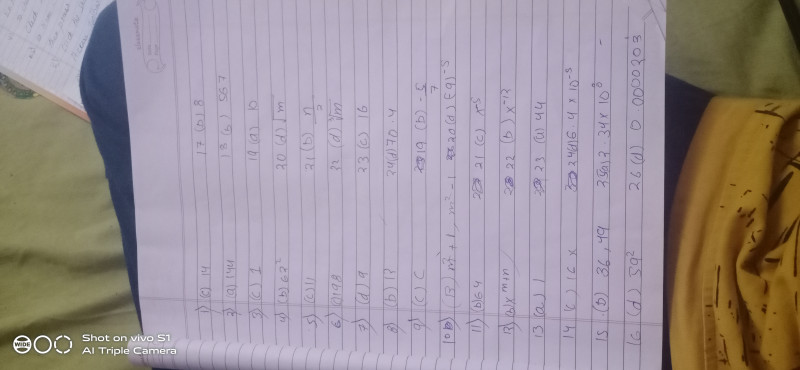 1) (c) 14
2) (a) 144
3) (c) 1
4) (b) 62²
5) (c) 11
6) 198
7) (d) 9
8) (b) 13
9) (c) C
10) (B) m² + 1, m² - 1
11) (b) 64
12) (a) x^mn
13 (a) 1
14 (c) 16 x
15 (b) 36, 49
16 (d) 59²
17 (a) 8
18 (b) 567
19 (a) 10
20 (d) √m
21 (b) n
22 (d) ∛m
23 (c) 16
24 (d) 70.4
19 (b) -5/7
20 (d) 59)⁻⁵
21 (c) x⁻⁵
22 (b) x⁻¹²
23 (a) 44
24 (d) 6.4 × 10⁻⁵
25 2.34 × 10⁸
26 (d) 0.0000203
Shot on vivo S1
AI Triple Camera
WIDE